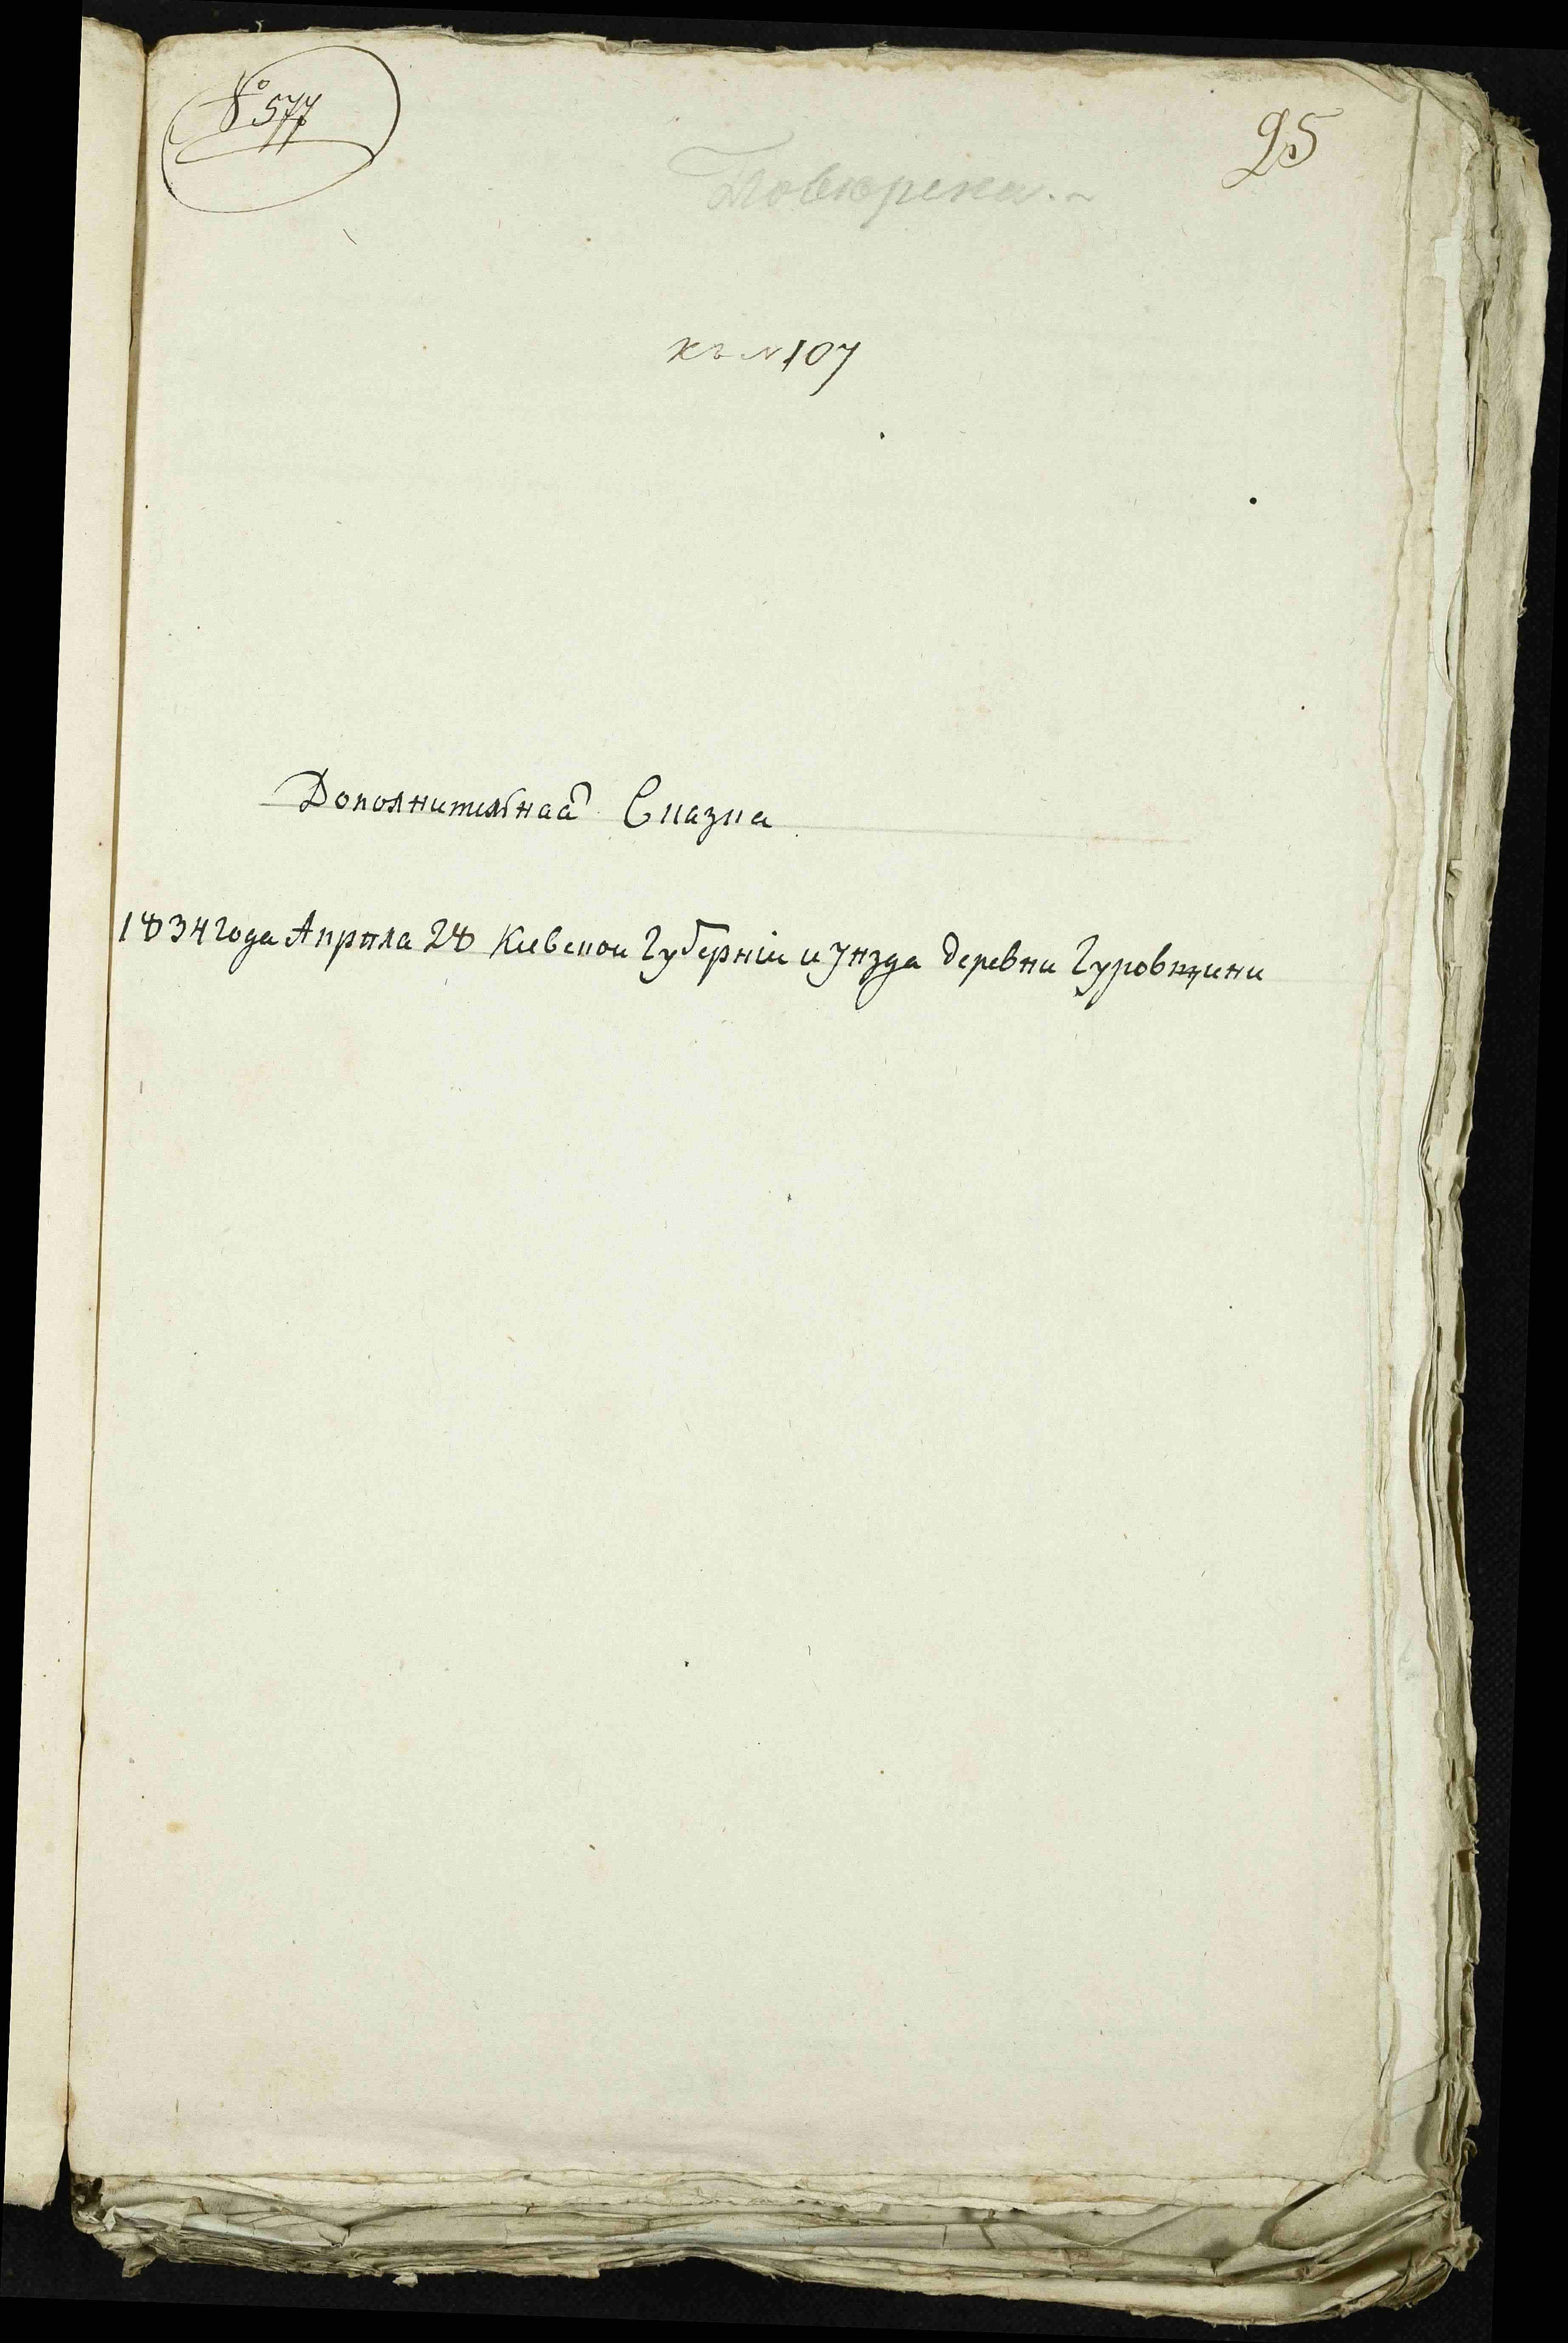 № 577
25
къ № 107
Дополнительная Сказка
1834 года Апреля 28 Киевскои Губернiи и уезда деревни Гуровщини